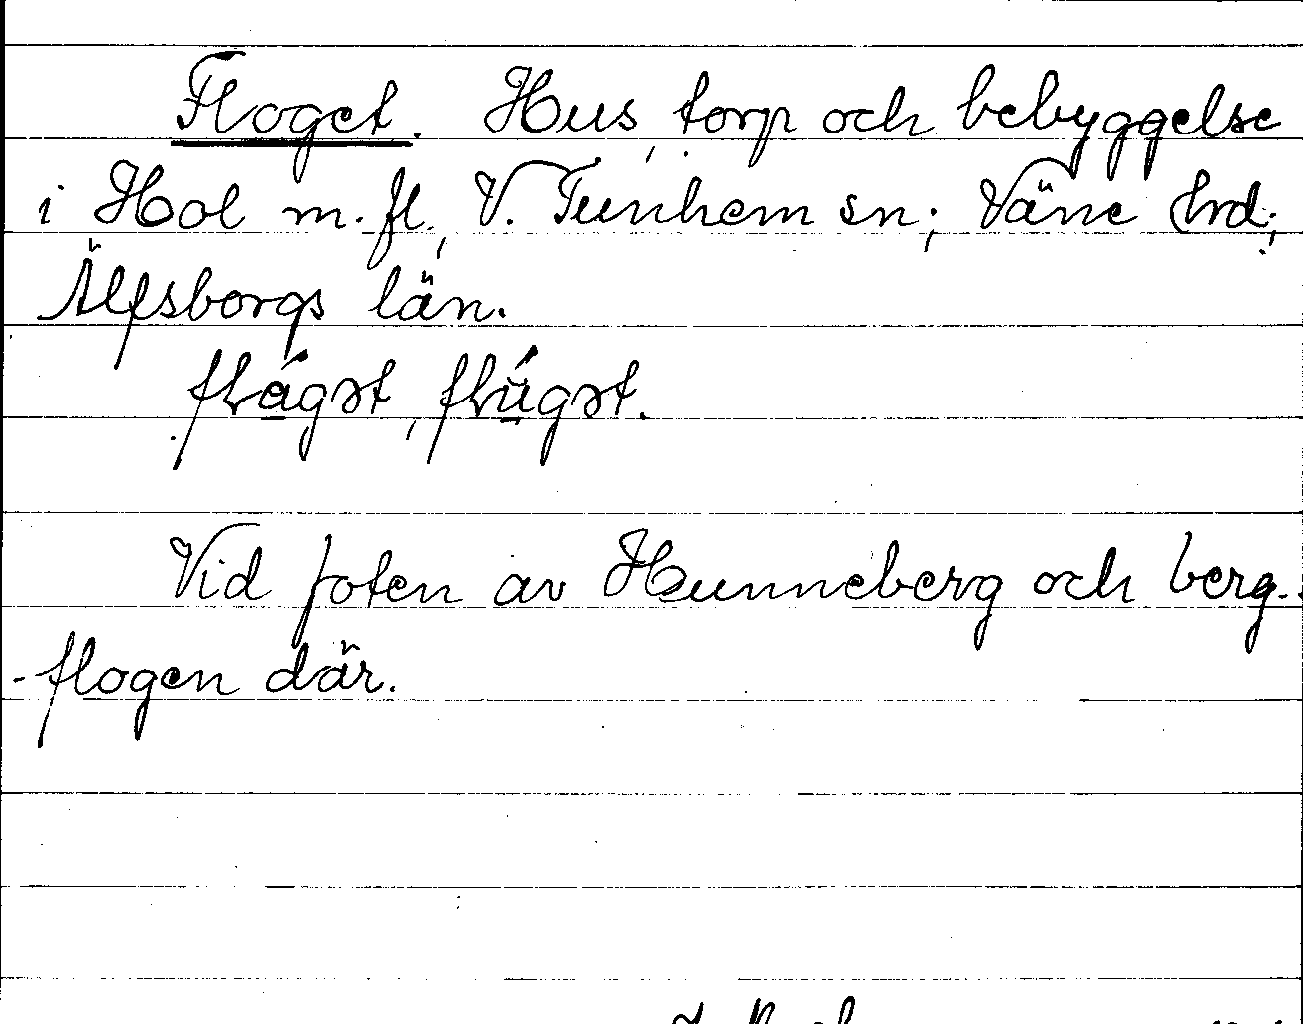 Floget. Hus, torp och bebyggelse
i Hol m.fl., V. Tunhem sn; Väne hrd;
Älfsborgs län.
Vid foten av Hunneberg och berg-
-flogen där.